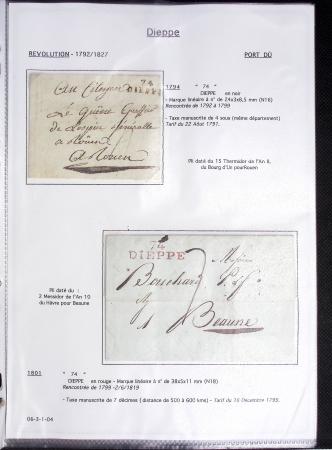 Dieppe
REVOLUTION - 1792/1827
PORT DÛ
1794 " 74 "
DIEPPE en noir
- Marque linéaire à n° de 24x3x8,5 mm (N18)
Rencontrée de 1792 à 1799
- Taxe manuscrite de 4 sous (même département)
Tarif du 22 Aôut 1791.
Pli daté du 15 Thermidor de l'An 8,
du Bourg d'Un pourRouen
74
DIEPPE
Au Citoyen
Le
Greffier
de
a Roüen
A Rouen
Pli daté du :
2 Messidor de l'An 10
du Hàvre pour Beaune
74
DIEPPE
7
Bouchard P. & f.
Beaune
1801 " 74 "
DIEPPE en rouge - Marque linéaire à n° de 38x5x11 mm (N18)
Rencontrée de 1799 -2/6/1819
- Taxe manuscrite de 7 décimes ( distance de 500 à 600 kms) - Tarif du 18 Décembre 1799.
06-3-1-04